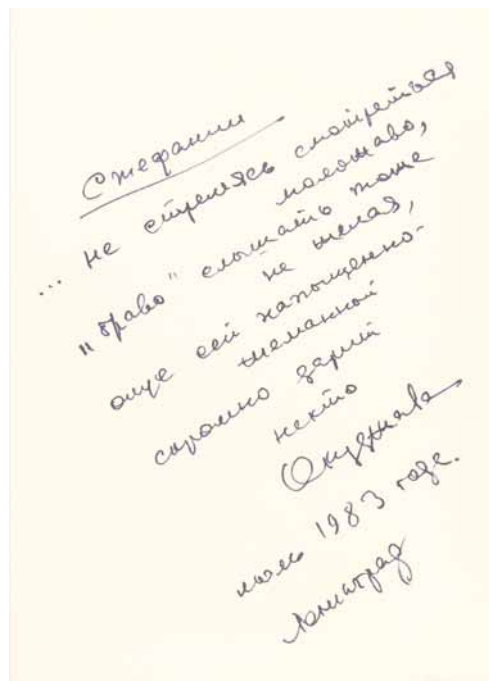 Стефании
... не стремясь смотреться
моложаво,
"браво" слышать тоже
не желая,
опус сей напыщенно-
жеманный
скромно дарит
некто
Окуджава
июль 1983 года.
Ленинград